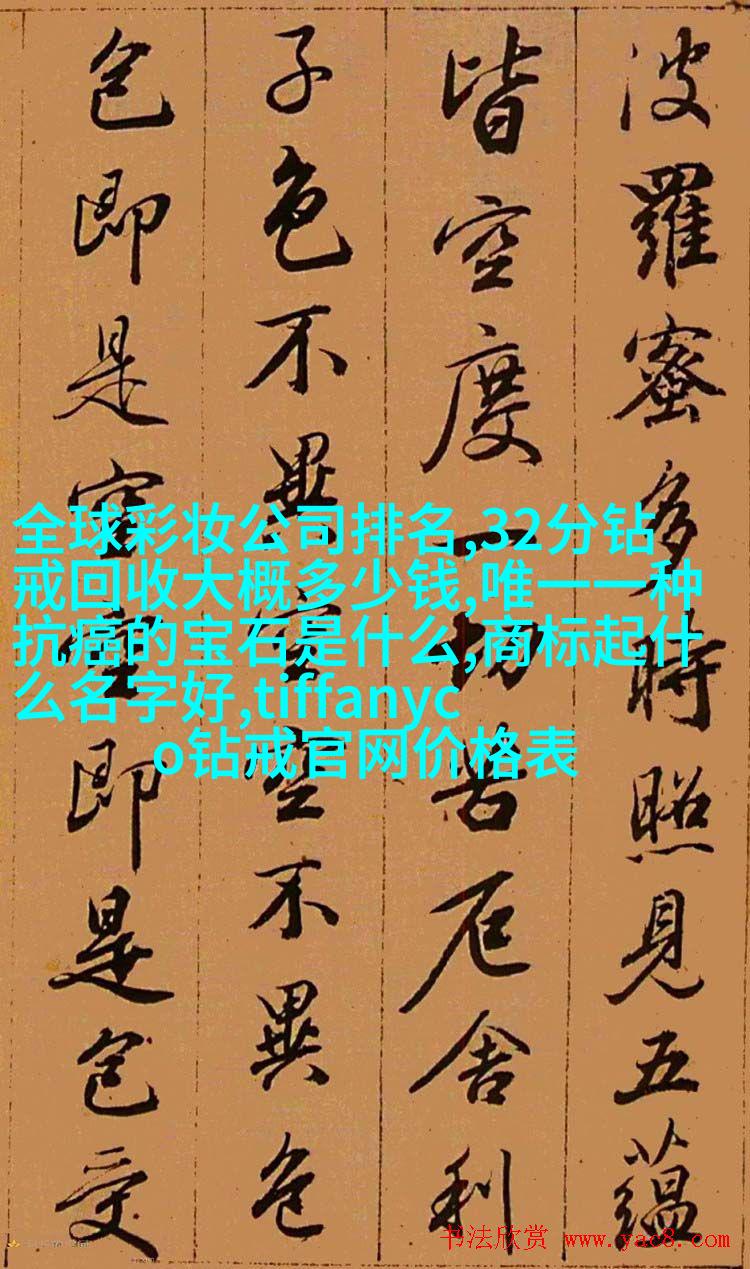 波羅蜜多時照見五蘊
皆空度一切苦厄舍利
子色不異空空不異色
色即是空空即是色受
全球彩妆公司排名,32分钻
戒回收大概多少钱,唯一一种
抗癌的宝石是什么,商标起什
么名字好,tiffanyc
o钻戒官网价格表
书法欣赏 www.yac8.com